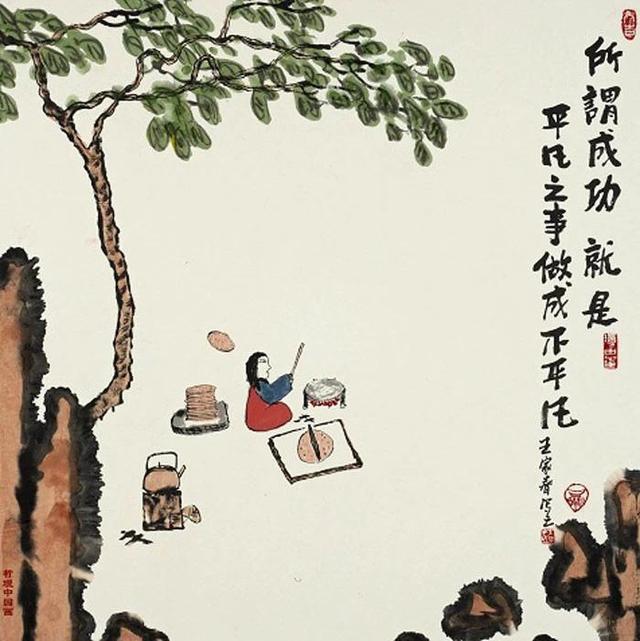 所謂成功 就是
平凡之事做成不平凡
王家春
中国画